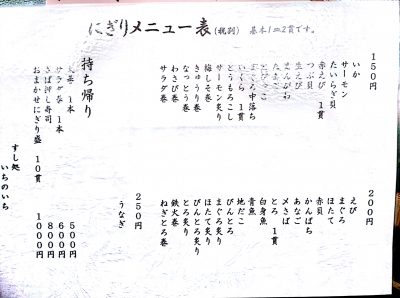 にぎりメニュー表(税別) 基本1皿2貫です。
150円
いか
サーモン
たいらぎ貝
赤えび 1貫
つぶ貝
生えび
えんがわ
たまご
とびこ
まぐろ中落ち
いくら 1貫
とうもろこし
サーモン炙り
梅しそ巻
きゅうり巻
なっとう巻
わさび巻
サラダ巻
200円
えび
まぐろ
ほたて
赤貝
かんぱち
あなご
〆さば
とろ 1貫
白身魚
青魚
地だこ
びんとろ
まぐろ炙り
ほたて炙り
びんとろ炙り
とろ炙り
鉄火巻
ねぎとろ巻
250円
うなぎ
持ち帰り
太巻 1本 500円
サラダ巻 1本 600円
さば押し寿司 800円
おまかせにぎり盛 10貫 1000円
すし処
いちのいち